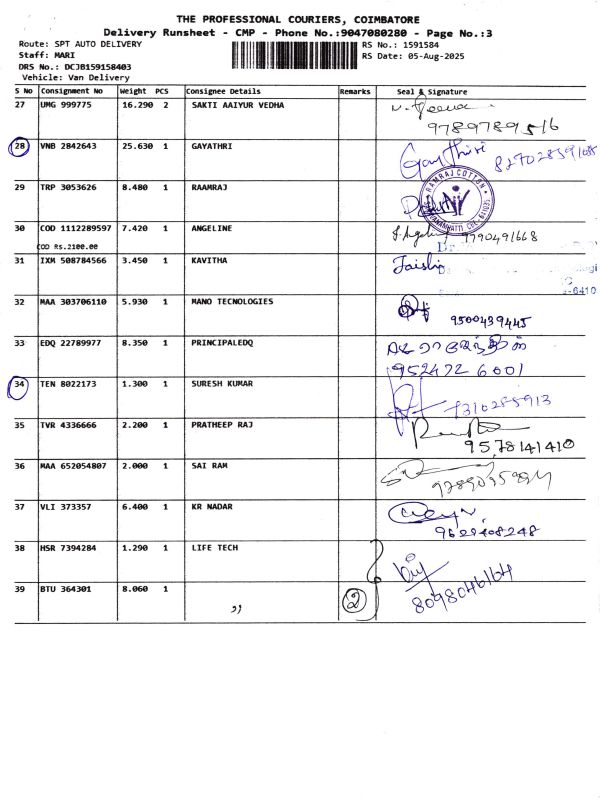 THE PROFESSIONAL COURIERS, COIMBATORE
Delivery Runsheet - CMP - Phone No.:9047080280 - Page No.:3
Route: SPT AUTO DELIVERY RS No.: 1591584
Staff: MARI RS Date: 05-Aug-2025
DRS No.: DCJB159158403
Vehicle: Van Delivery
S No Consignment No Weight PCS Consignee Details Remarks Seal & Signature
27 UMG 999775 16.290 2 SAKTI AAIYUR VEDHA
9789789516
28 VNB 2842643 25.630 1 GAYATHRI Gayathiri
29 TRP 3053626 8.480 1 RAAMRAJ RAMRAJ COTTON
30 COD 1112289597 7.420 1 ANGELINE 9790491668
COD Rs.2100.00
31 IXM 508784566 3.450 1 KAVITHA Jaishi
32 MAA 303706110 5.930 1 MANO TECNOLOGIES
9500439445
33 EDQ 22789977 8.350 1 PRINCIPALEDQ
9524726001
34 TEN 8022173 1.300 1 SURESH KUMAR
35 TVR 4336666 2.200 1 PRATHEEP RAJ
9578141410
36 MAA 652054807 2.000 1 SAI RAM
37 VLI 373357 6.400 1 KR NADAR
9629408248
38 HSR 7394284 1.290 1 LIFE TECH
39 BTU 364301 8.060 1 2 8098046164